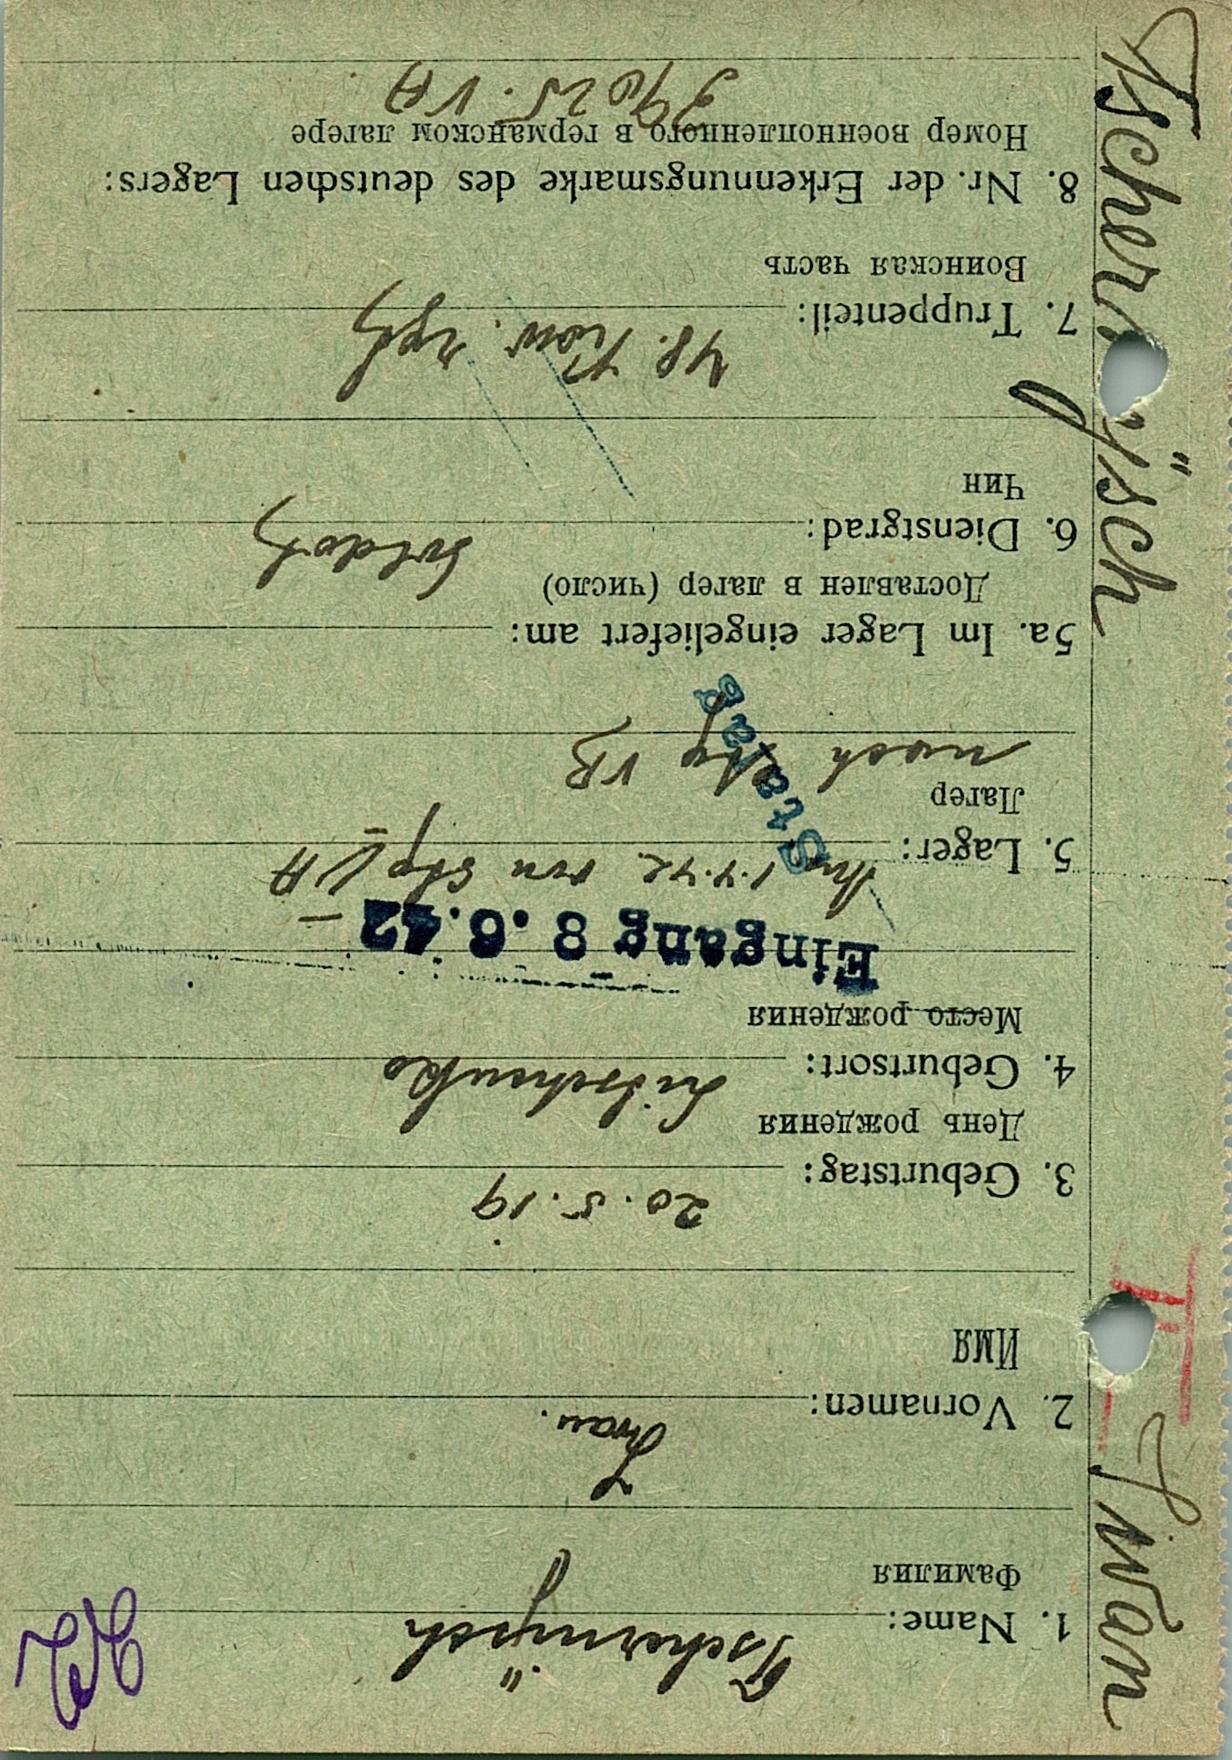 Tschernÿsch Iwan
II
1. Name: Tschernÿsch
Фамилия
2. Vornamen: Iwan.
ИМЯ
3. Geburtstag: 20. 5. 19
День рождения
4. Geburtsort:
Место рождения
Eingang 8. 6. 42
5. Lager: 1.4.42 von VA
Лагер
nach VB
Stalag
5a. Im Lager eingeliefert am:
Доставлен в лагер (число)
6. Dienstgrad: Soldat
Чин
7. Truppenteil: 48. Kaw.
Воинская часть
8. Nr. der Erkennungsmarke des deutschen Lagers:
Номер военнопленного в германском лагере
39025. VA